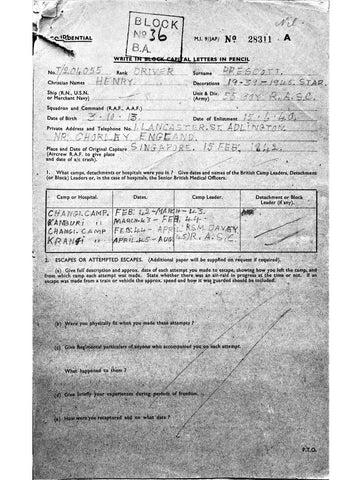 BLOCK
No 36
B.A.
Nil
CONFIDENTIAL
M.I. 9/JAP/ No 28311 A
WRITE IN BLOCK CAPITAL LETTERS IN PENCIL
No. T/204055 Rank DRIVER Surname PRESCOTT
Christian Names HENRY Decorations 19-39-1945 STAR
Ship (R.N., U.S.N. or Merchant Navy) Unit & Div. (Army) R.A.S.C.
Squadron and Command (R.A.F., A.A.F.)
Date of Birth 3-10-13 Date of Enlistment 15-6-40
Private Address and Telephone No. 1 LANCASTER ST ADLINGTON
NR. CHORLEY ENGLAND.
Place and Date of Original Capture SINGAPORE. 15 FEB. 1942.
(Aircrew R.A.F. give to place
and date of a/c crash).
1. What camps, detachments or hospitals were you in? Give dates and names of the British Camp Leaders, Detachment
(or Block) Leaders or, in the case of hospitals, the Senior British Medical Officers.
Camp or Hospital. Dates. Camp Leader. Detachment or Block Leader (if any).
CHANGI. CAMP. FEB. 42-MARCH-43.
KANBURI " MARCH 43-FEB. 44-
CHANGI. CAMP FEB-44-APRIL RSM DAVEY
KRANJI " APRIL 45-AUG 45 R.A.S.C.
2. ESCAPES OR ATTEMPTED ESCAPES. (Additional paper will be supplied on request if required).
(a) Give full description and approx. date of each attempt you made to escape, showing how you left the camp, and
from which camp each attempt was made. State whether there was an air-raid in progress at the time or not. If an
escape was made from a train or vehicle the approx. speed and how it was guarded should be included.
(b) Were you physically fit when you made these attempts?
(c) Give Regimental particulars of anyone who accompanied you on each attempt.
What happened to them?
(d) Give briefly your experiences during periods of freedom.
(e) How were you recaptured and on what date?
P.T.O.